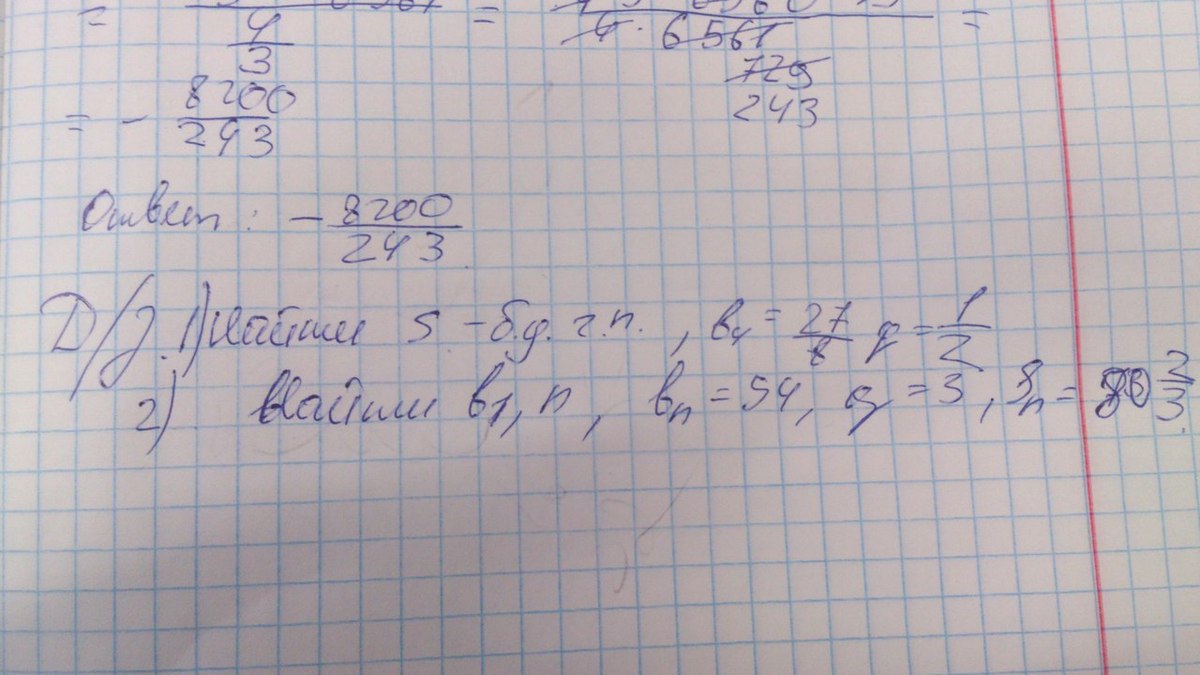 = 4/3 = 4 · 6561 =
729
= - 8200/243 243
Ответ: - 8200/243
Д/з. 1) Найти S - б.у. г.п., b₄ = 27/8 q = 1/2
2) Найти b₁, n, bₙ = 54, q = 3, Sₙ = 80 2/3